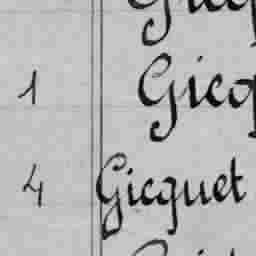 1 Gicq
4 Gicquet